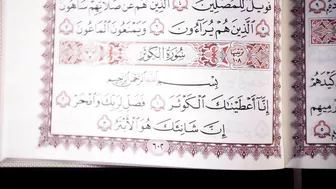 فَوَيْلٌ لِّلْمُصَلِّينَ ٤ الَّذِينَ هُمْ عَن صَلَاتِهِمْ سَاهُونَ
٥ الَّذِينَ هُمْ يُرَاءُونَ ٦ وَيَمْنَعُونَ الْمَاعُونَ ٧
سُورَةُ الْكَوْثَرِ ١٠٨
بِسْمِ اللَّهِ الرَّحْمَٰنِ الرَّحِيمِ
إِنَّا أَعْطَيْنَاكَ الْكَوْثَرَ ١ فَصَلِّ لِرَبِّكَ وَانْحَرْ
٢ إِنَّ شَانِئَكَ هُوَ الْأَبْتَرُ ٣
٦٠٢